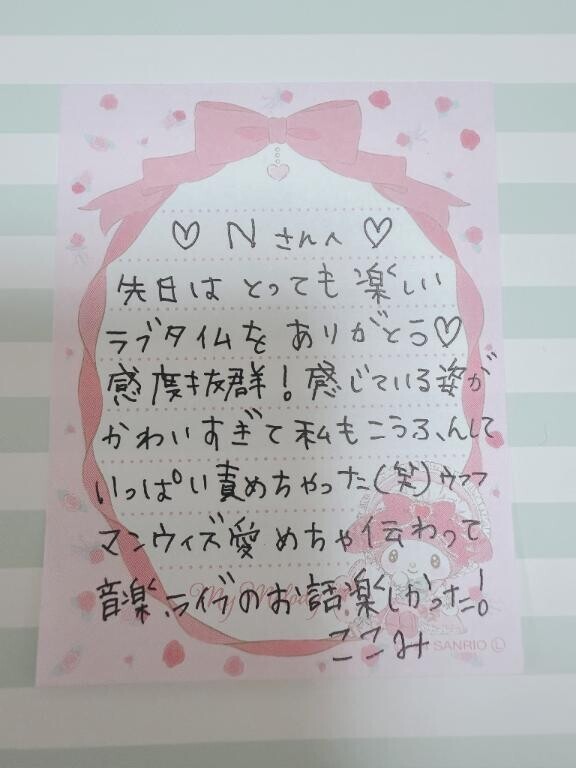 ♡ Nさんへ ♡
先日は とっても 楽しい
ラブタイムを ありがとう♡
感度抜群！感じている姿が
かわいすぎて 私もこうふんして
いっぱい責めちゃった(笑)ウフフ
マンウィズ愛 めちゃ伝わって
音楽、ライブのお話楽しかった！
My Melody
ここみ
SANRIO Ⓛ